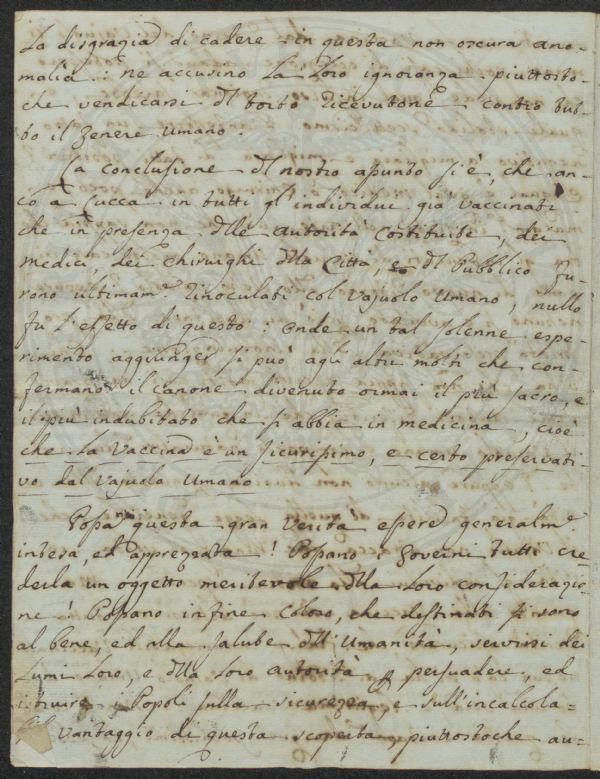 La disgrazia di cadere in questa non oscura ano-
malia: ne accusino la loro ignoranza piuttosto-
che vendicarsi del torto ricevutone contro tut-
to il Genere umano.
La conclusione del nostro assunto si è, che an-
co a Lucca in tutti gl'individui già vaccinati
che in presenza delle autorità costituite, dei
medici, dei chirurghi della Città, e del Pubblico fu-
rono ultimam.e rinoculati col vajuolo umano, nullo
fu l'effetto di questo: onde un tal solenne espe-
rimento aggiunger si può agli altri molti che con-
fermano il canone divenuto ormai il più sacro, e
il più indubitato che si abbia in medicina, cioè
che la vaccina è un sicurissimo, e certo preservati-
vo dal vajuolo umano
Possa questa gran verità essere generalm.e
intesa, ed apprezzata! Possano i Governi tutti cre-
derla un oggetto meritevole della loro considerazio-
ne! Possano infine coloro, che destinati si sono
al bene, ed alla salute dell'umanità, servirsi dei
lumi loro, e della loro autorità persuadere, ed
istruire i Popoli sulla sicurezza, e sull'incalcola-
vantaggio di questa scoperta, piuttostoche au-